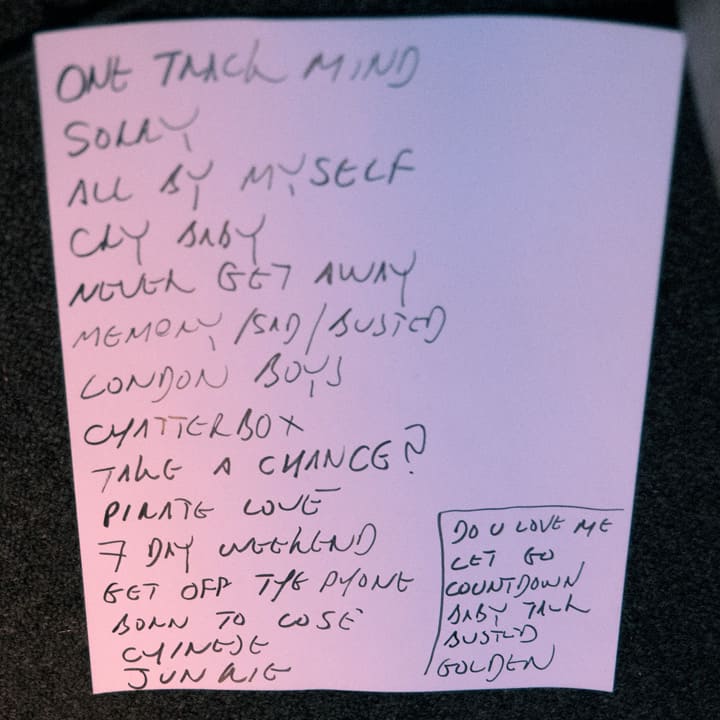 ONE TRACK MIND
SORRY
ALL BY MYSELF
CRY BABY
NEVER GET AWAY
MEMORY/SAD/BUSTED
LONDON BOYS
CHATTERBOX
TAKE A CHANCE?
PIRATE LOVE
7 DAY WEEKEND
GET OFF THE PHONE
BORN TO LOSE
CHINESE
JUNKIE
DO U LOVE ME
LET GO
COUNTDOWN
BABY TALK
BUSTED
GOLDEN